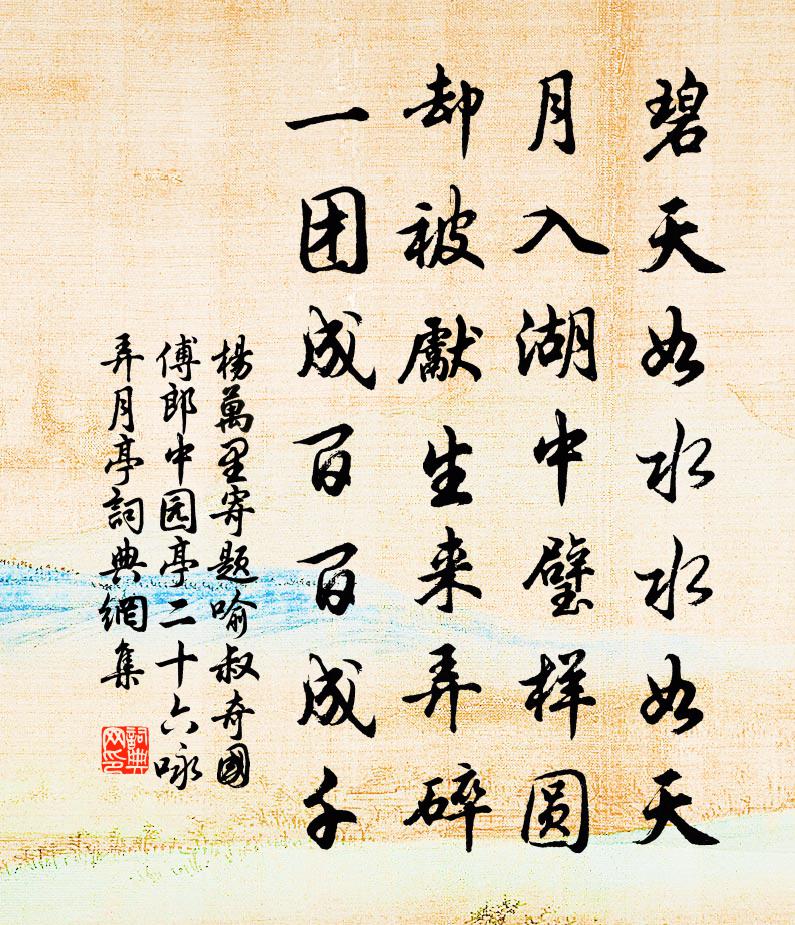 碧天如水水如天
月入湖中璧样圆
却被獻生来弄碎
一团成百百成千
楊萬里寄题喻叔奇國
傅郎中园亭二十六咏
弄月亭詞典網集
詞典网印